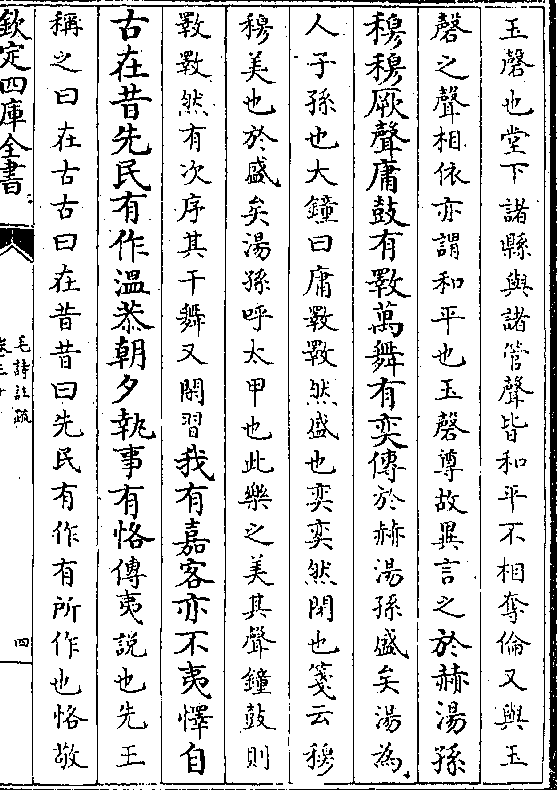 玉磬也堂下諸縣與諸管聲皆和平不相奪倫又與玉
磬之聲相依亦謂和平也玉磬尊故異言之於赫湯孫
穆穆厥聲庸鼓有斁萬舞有奕傳於赫湯孫盛矣湯為
人子孫也大鐘曰庸斁斁然盛也奕奕然閑也箋云穆
穆美也於盛矣湯孫呼太甲也此樂之美其聲鐘鼓則
斁斁然有次序其干舞又閑習我有嘉客亦不夷懌自
古在昔先民有作溫恭朝夕執事有恪傳夷說也先王
稱之曰在古古曰在昔昔曰先民有作有所作也恪敬
欽定四庫全書
毛詩註疏
卷三十
四